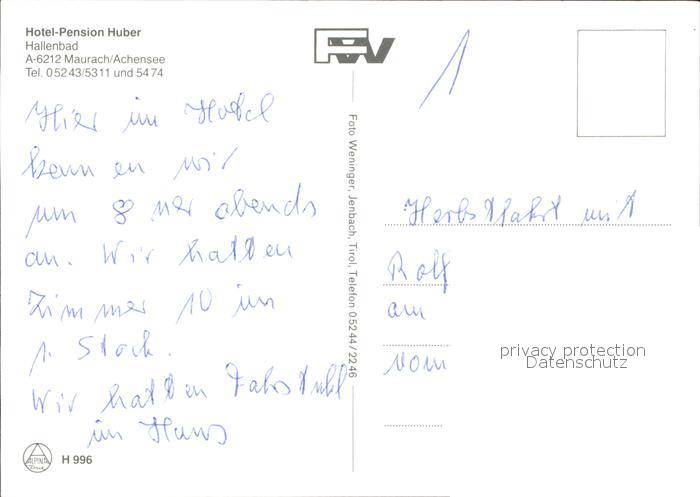 Hotel-Pension Huber
Hallenbad
A-6212 Maurach/Achensee
Tel. 05243/5311 und 5474
Hier im Hotel
kamen wir
um 8 Uhr abends
an. Wir hatten
Zimmer 10 im
1. Stock.
Wir hatten Fahrstuhl
im Haus
ALPINA
H 996
FW
Foto Weninger, Jenbach, Tirol, Telefon 05244/2246
1
Herbstfahrt mit
Rolf
am
vom
privacy protection
Datenschutz